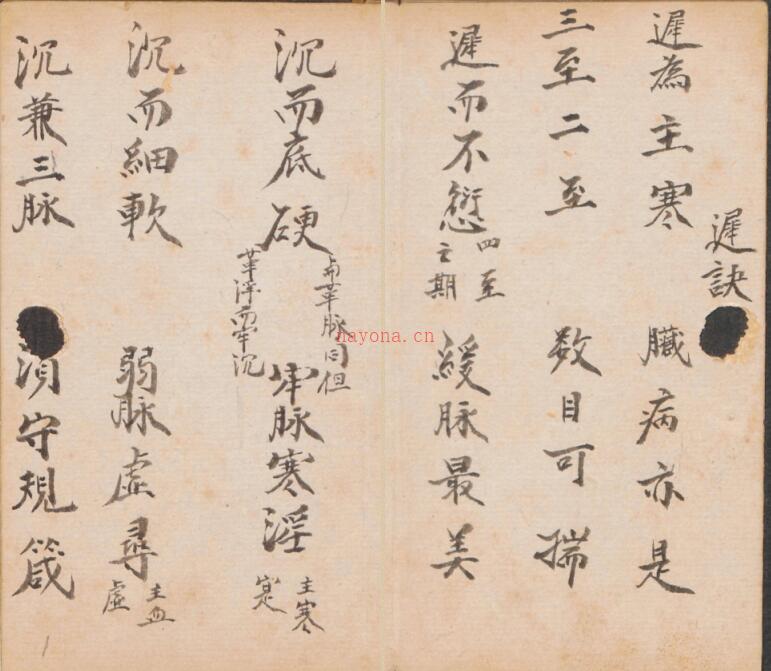 遲訣
遲為主寒 臟病亦是
三至二至 数目可揣
遲而不愆 四至之期 緩脉最美
沉而底硬 與革脉同但革浮而牢沉 牢脉寒淫 主寒寔
沉而細軟 弱脉虛尋 主血虛
沉兼三脉 須守規箴
nayona.cn